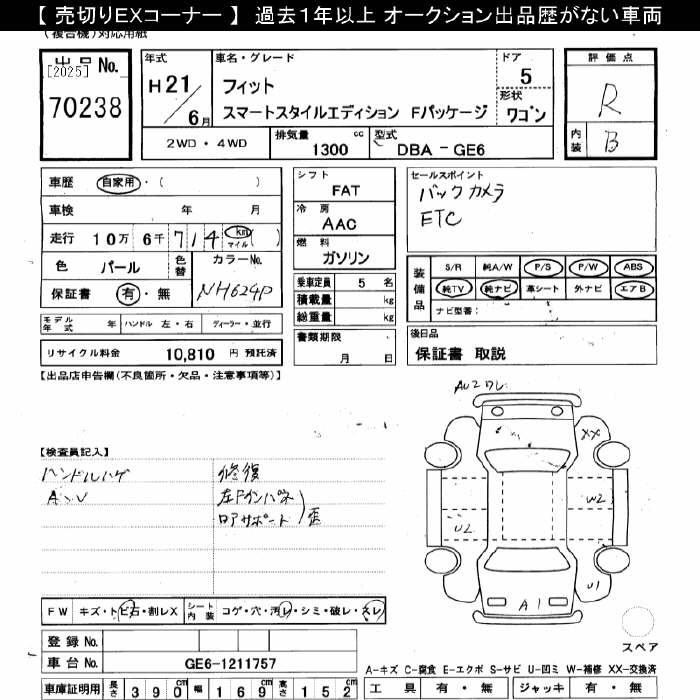 【 売切りEXコーナー 】 過去１年以上 オークション出品歴がない車両
(複合機)対応用紙
出品 No.
[2025]
70238
年式
H21/6月
車名・グレード
フィット
スマートスタイルエディション Fパッケージ
ドア
5
形状
ワゴン
評価点
R
内装
B
2WD・4WD
排気量
1300 cc
型式
DBA－GE6
車歴 自家用・( )
車検 年 月
走行 10万 6千 714 km マイル ( )
色 パール
色替
カラーNo.
NH624P
保証書 有・無
シフト
FAT
冷房
AAC
燃料
ガソリン
セールスポイント
バックカメラ
ETC
装備品
S/R 純A/W P/S P/W ABS
純TV 純ナビ 革シート 外ナビ エアB
ナビ型番：
乗車定員 5 名
積載量 kg
総重量 kg
モデル年式 年 ハンドル 左・右 ディーラー・並行
リサイクル料金 10,810 円 預託済
書類期限
月 日
後日品
保証書 取説
【出品店申告欄(不良箇所・欠品・注意事項等)】
【検査員記入】
ハンドルハゲ
AUU
修復
左Fインパネ
ロアサポート
歪
AU2ワレ
XX
W2
U2
U1
A1
スペア
FW キズ・トビ石・割レX
シート内装 コゲ・穴・汚レ・シミ・破レ・スレ
登録 No.
車台 No. GE6-1211757
車庫証明用 長さ 390cm 幅 169cm 高さ 152cm
A-キズ C-腐食 E-エクボ S-サビ U-凹ミ W-補修 XX-交換済
工具 有・無 ジャッキ 有・無